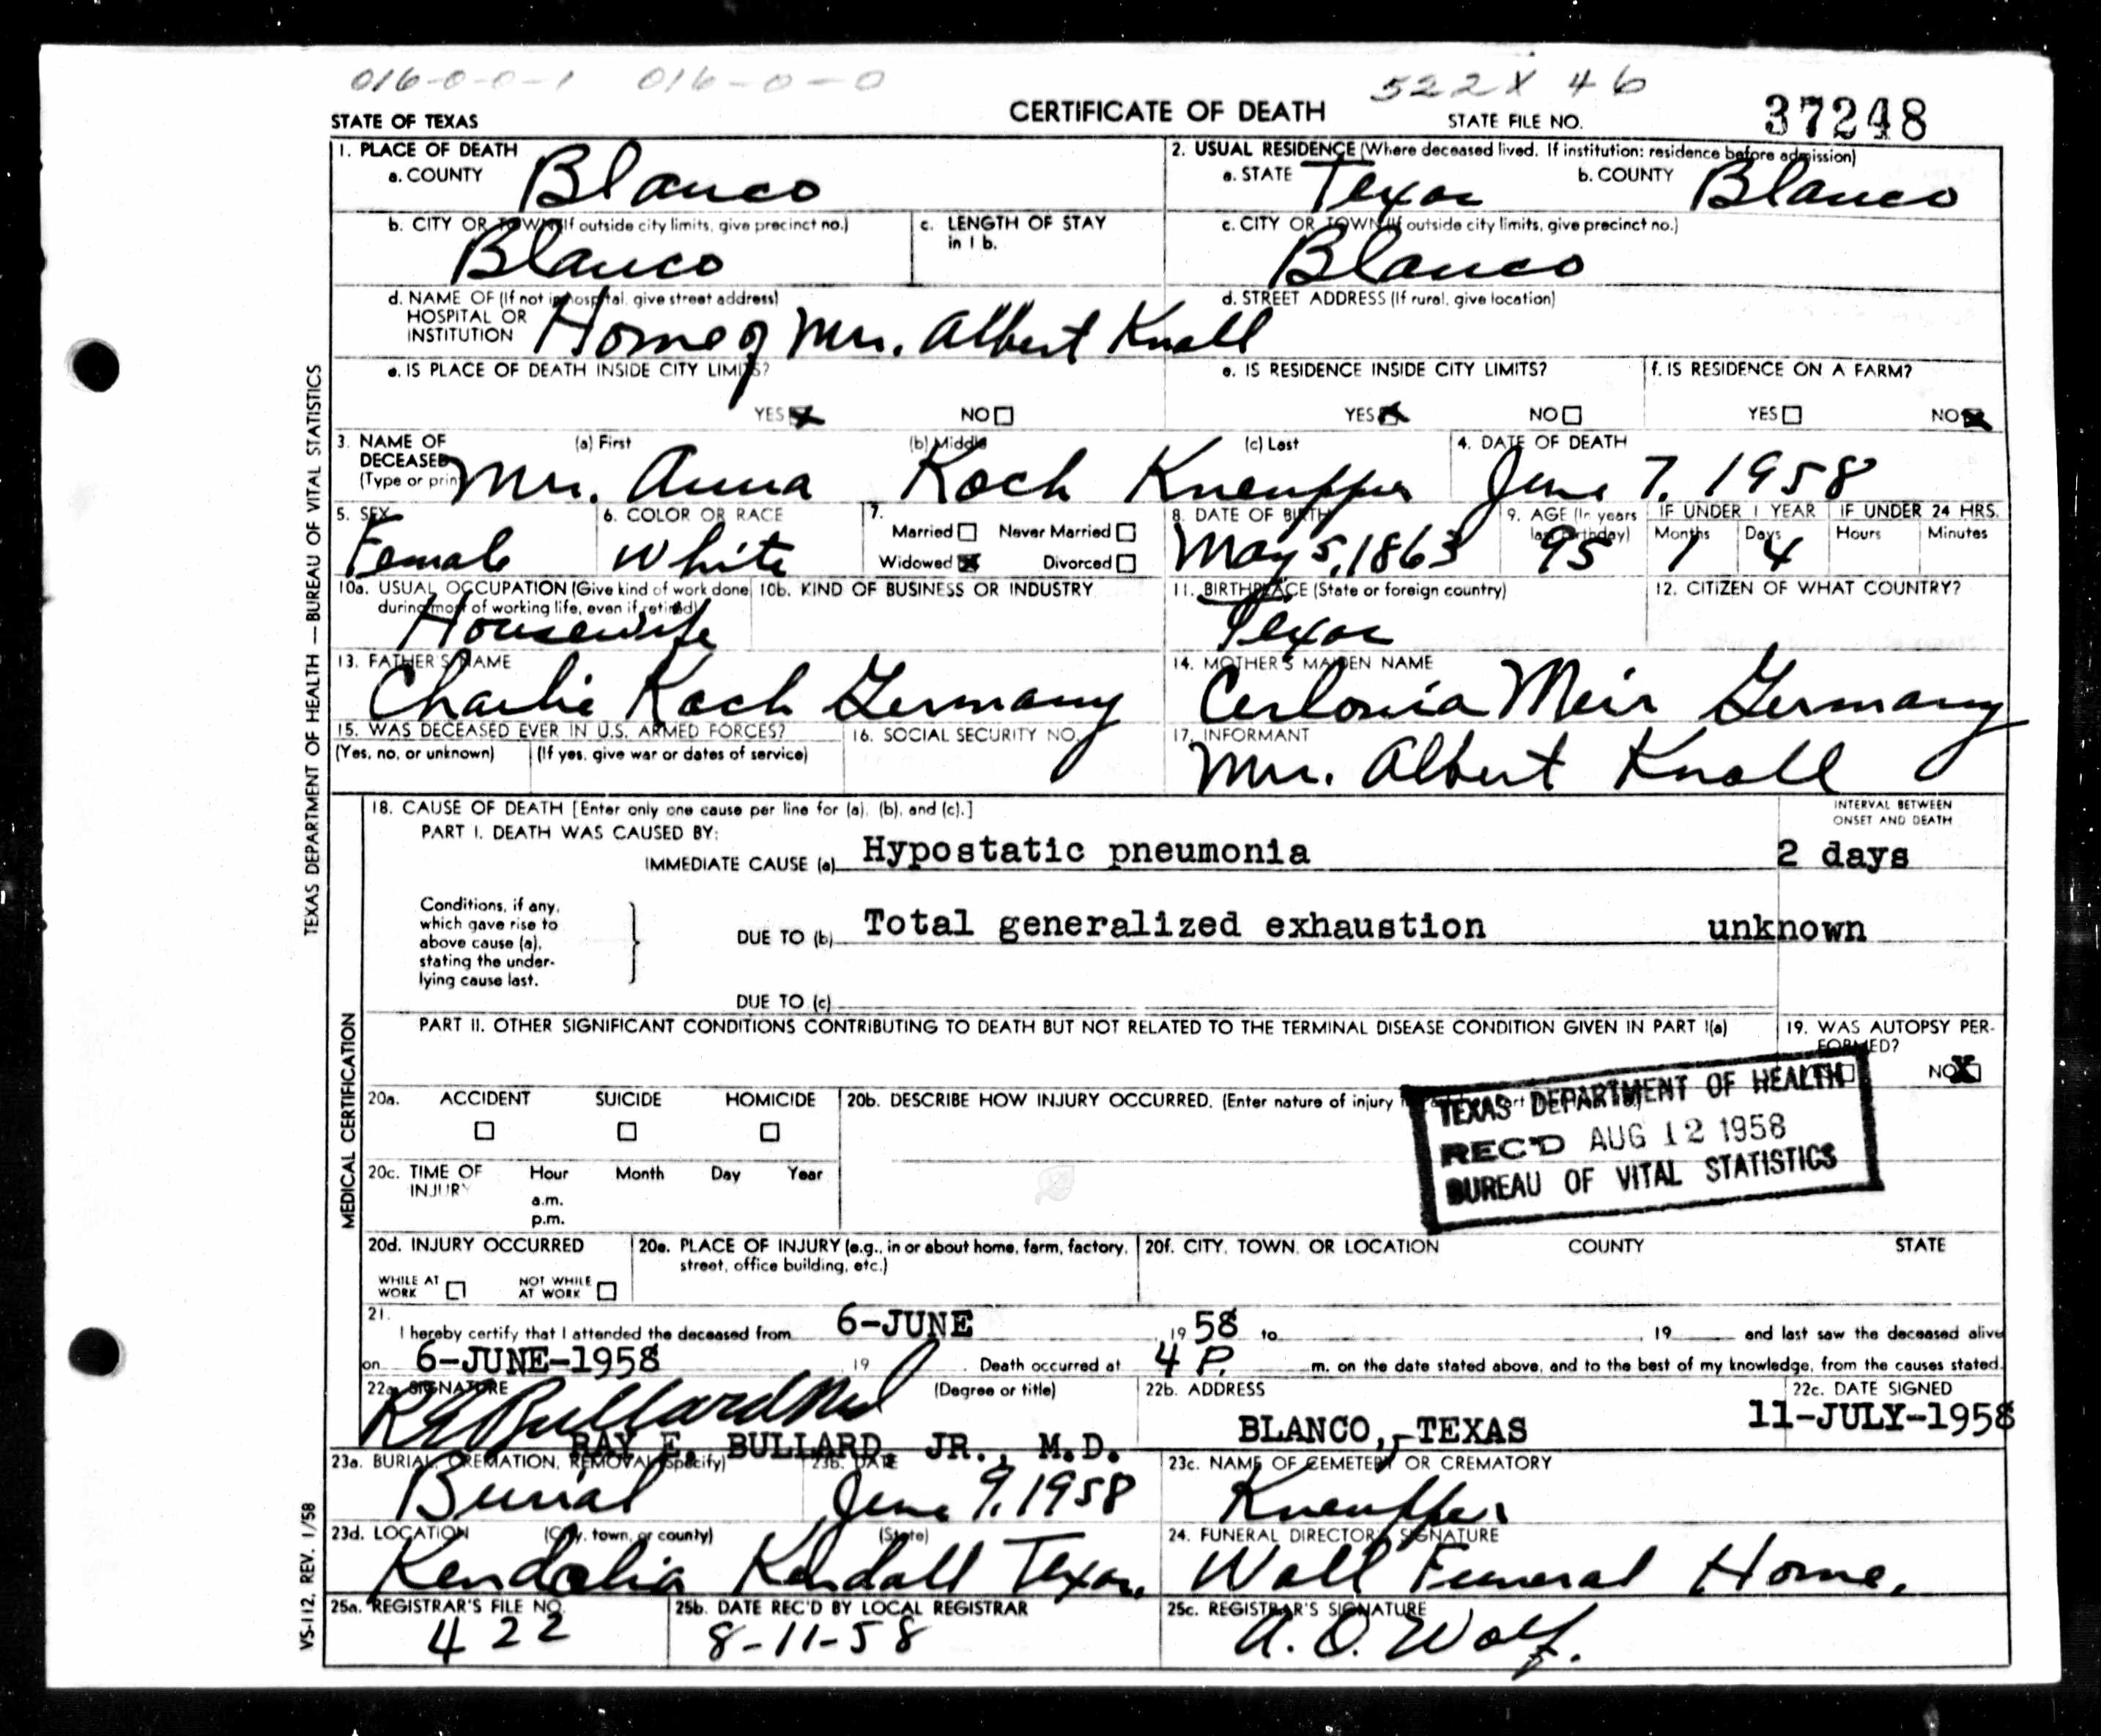 016-0-0-1 016-0-0 522X 46
STATE OF TEXAS CERTIFICATE OF DEATH STATE FILE NO. 37248
1. PLACE OF DEATH
a. COUNTY Blanco
2. USUAL RESIDENCE (Where deceased lived. If institution: residence before admission)
a. STATE Texas b. COUNTY Blanco
b. CITY OR TOWN (If outside city limits, give precinct no.)
Blanco
c. LENGTH OF STAY
in 1 b.
c. CITY OR TOWN (If outside city limits, give precinct no.)
Blanco
d. NAME OF (If not in hospital, give street address)
HOSPITAL OR
INSTITUTION Home of Mrs. Albert Knoll
d. STREET ADDRESS (If rural, give location)
e. IS PLACE OF DEATH INSIDE CITY LIMITS?
YES NO
e. IS RESIDENCE INSIDE CITY LIMITS?
YES NO
f. IS RESIDENCE ON A FARM?
YES NO
3. NAME OF DECEASED (Type or print)
(a) First (b) Middle (c) Last
Mrs. Anna Koch Kneupper
4. DATE OF DEATH
June 7, 1958
5. SEX
Female
6. COLOR OR RACE
White
7.
Married Never Married
Widowed Divorced
8. DATE OF BIRTH
May 5, 1863
9. AGE (In years
last birthday)
95
IF UNDER 1 YEAR IF UNDER 24 HRS.
Months Days Hours Minutes
1 4
10a. USUAL OCCUPATION (Give kind of work done
during most of working life, even if retired)
Housewife
10b. KIND OF BUSINESS OR INDUSTRY
11. BIRTHPLACE (State or foreign country)
Texas
12. CITIZEN OF WHAT COUNTRY?
13. FATHER'S NAME
Charlie Koch Germany
14. MOTHER'S MAIDEN NAME
Meir Germany
15. WAS DECEASED EVER IN U.S. ARMED FORCES?
(Yes, no, or unknown) (If yes, give war or dates of service)
16. SOCIAL SECURITY NO.
17. INFORMANT
Mrs. Albert Knoll
18. CAUSE OF DEATH [Enter only one cause per line for (a), (b), and (c).]
INTERVAL BETWEEN
ONSET AND DEATH
PART I. DEATH WAS CAUSED BY:
IMMEDIATE CAUSE (a) Hypostatic pneumonia 2 days
Conditions, if any,
which gave rise to
above cause (a),
stating the under-
lying cause last.
DUE TO (b) Total generalized exhaustion unknown
DUE TO (c)
PART II. OTHER SIGNIFICANT CONDITIONS CONTRIBUTING TO DEATH BUT NOT RELATED TO THE TERMINAL DISEASE CONDITION GIVEN IN PART I(a)
19. WAS AUTOPSY PER-
FORMED?
NO
20a. ACCIDENT SUICIDE HOMICIDE
20b. DESCRIBE HOW INJURY OCCURRED. (Enter nature of injury
TEXAS DEPARTMENT OF HEALTH
REC'D AUG 12 1958
BUREAU OF VITAL STATISTICS
20c. TIME OF
INJURY
Hour Month Day Year
a.m.
p.m.
20d. INJURY OCCURRED
WHILE AT
WORK
NOT WHILE
AT WORK
20e. PLACE OF INJURY (e.g., in or about home, farm, factory,
street, office building, etc.)
20f. CITY, TOWN, OR LOCATION COUNTY STATE
21.
I hereby certify that I attended the deceased from 6-JUNE , 19 58 to , 19 and last saw the deceased alive
on 6-JUNE-1958 , 19 . Death occurred at 4 P. m. on the date stated above, and to the best of my knowledge, from the causes stated.
22a. SIGNATURE (Degree or title)
R E Bullard MD
RAY E. BULLARD, JR., M.D.
22b. ADDRESS
BLANCO, TEXAS
22c. DATE SIGNED
11-JULY-1958
23a. BURIAL, CREMATION, REMOVAL (Specify)
Burial
23b. DATE
June 9, 1958
23c. NAME OF CEMETERY OR CREMATORY
Kneupper
23d. LOCATION (City, town, or county) (State)
Kendalia Kendall Texas,
24. FUNERAL DIRECTOR'S SIGNATURE
Wall Funeral Home.
25a. REGISTRAR'S FILE NO.
422
25b. DATE REC'D BY LOCAL REGISTRAR
8-11-58
25c. REGISTRAR'S SIGNATURE
A. O. Wolf.
TEXAS DEPARTMENT OF HEALTH — BUREAU OF VITAL STATISTICS
MEDICAL CERTIFICATION
VS-112, REV. 1/58